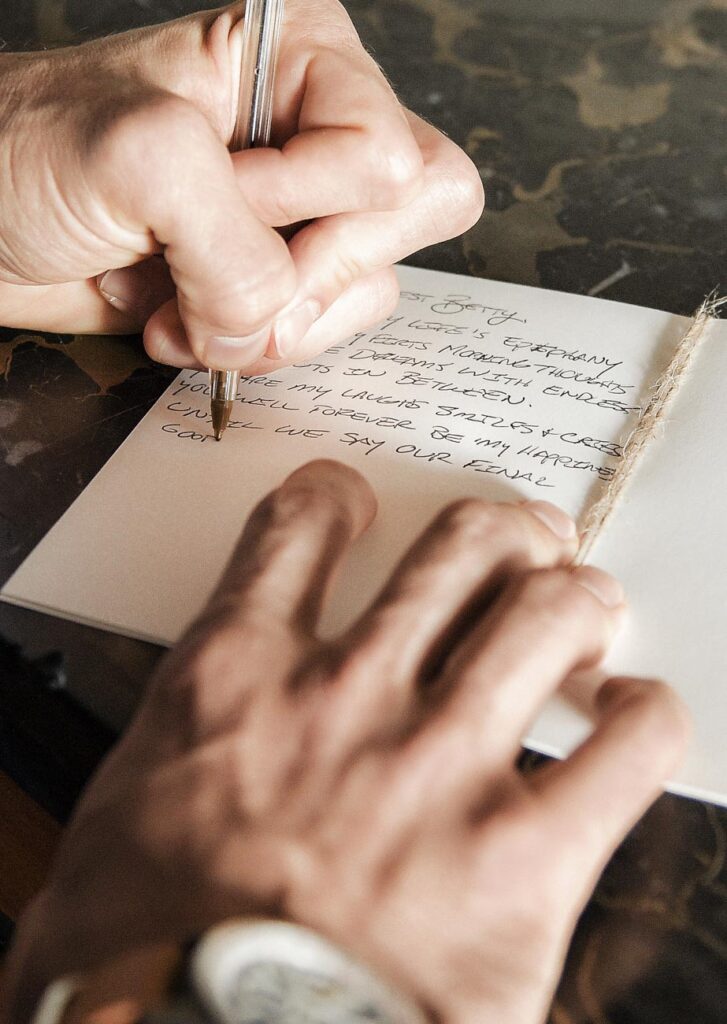 EST BETTY,
Y LIFE'S EPIPHANY
Y FIRTS MORNING THOUGHTS
E DREAMS WITH ENDLESS
UTS IN BETWEEN.
ARE MY LAUGHS SMILES & CRIES
YOU WILL FOREVER BE MY HAPPINE
UNTIL WE SAY OUR FINAL
GOO